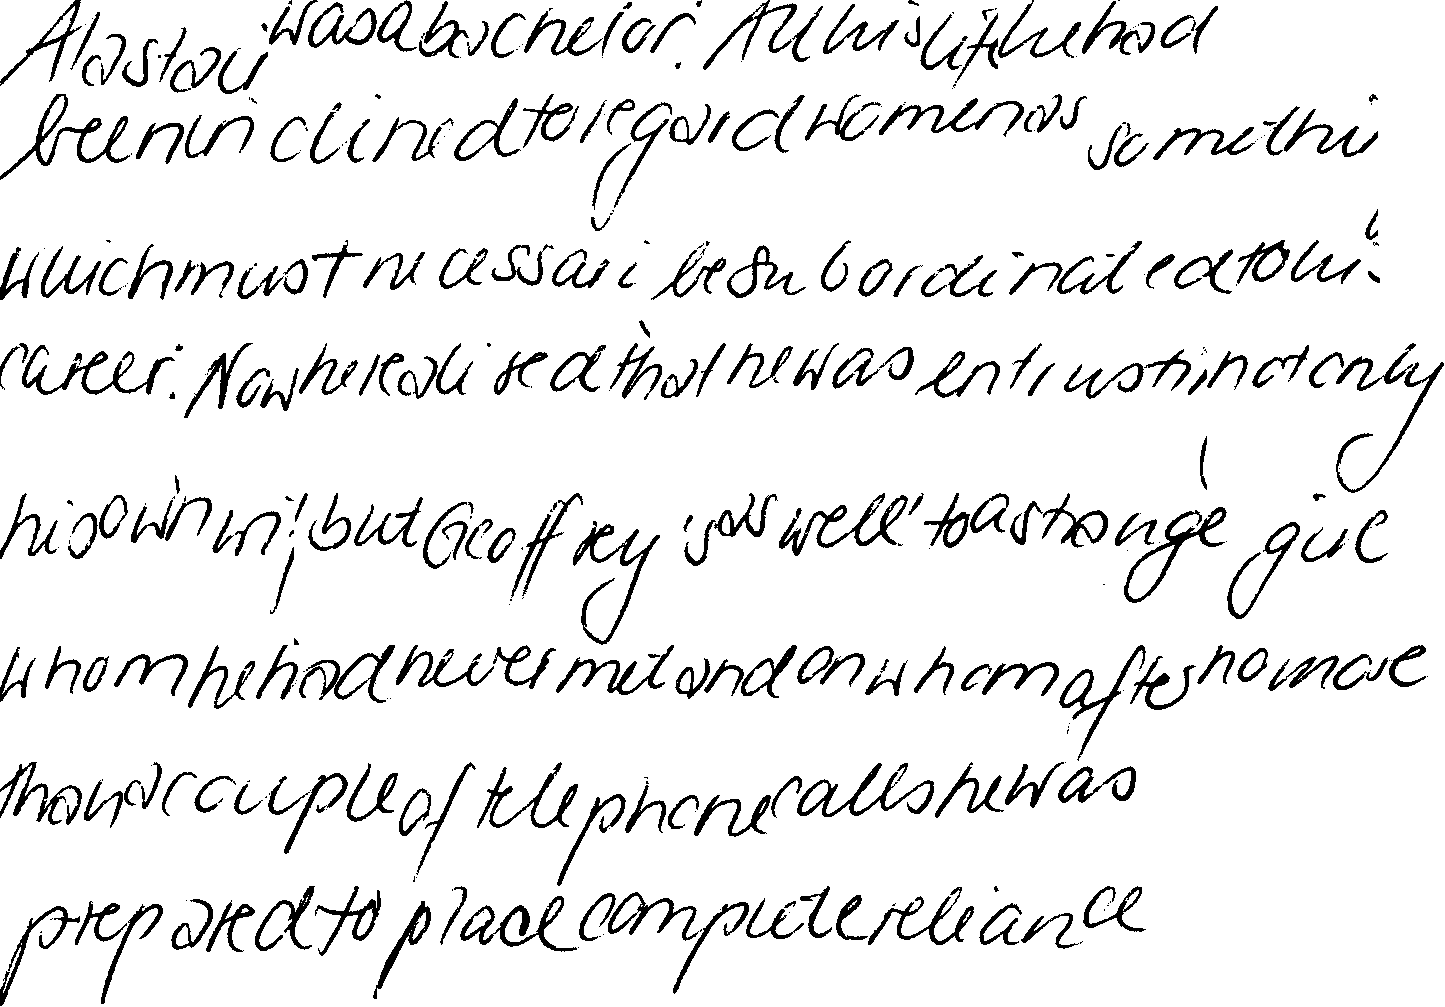 Alastair was a bachelor. All his life he had
been inclined to regard women as something
which must necessari be subordinated to his
career. Now he realised that he was entrusting not only
his own life but Geoffrey's as well to a strange girl
whom he had never met and on whom after no more
than a couple of telephone calls he was
prepared to place complete reliance